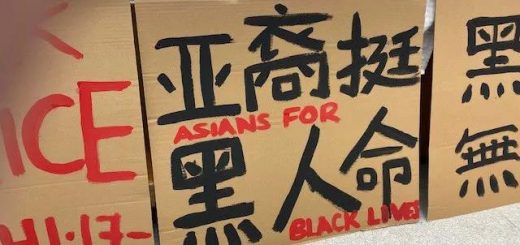 ICE
亚裔挺
ASIANS FOR
黑人命
BLACK LIVES
黑
無